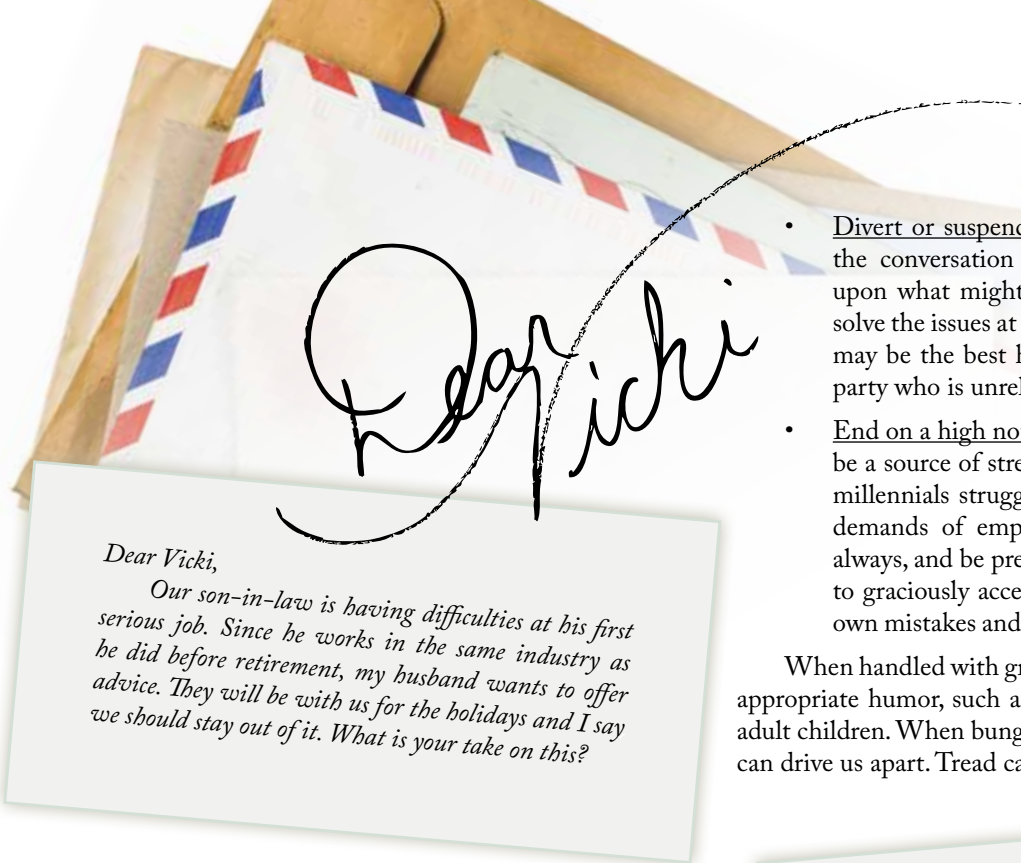 Dear
Vicki
Dear Vicki,
Our son-in-law is having difficulties at his first
serious job. Since he works in the same industry as
he did before retirement, my husband wants to offer
advice. They will be with us for the holidays and I say
we should stay out of it. What is your take on this?
• Divert or suspend
the conversation
upon what might
solve the issues at
may be the best
party who is
• End on a high
be a source of
millennials
demands of
always, and be
to graciously
own mistakes and
When handled with
appropriate humor, such
adult children. When
can drive us apart. Tread